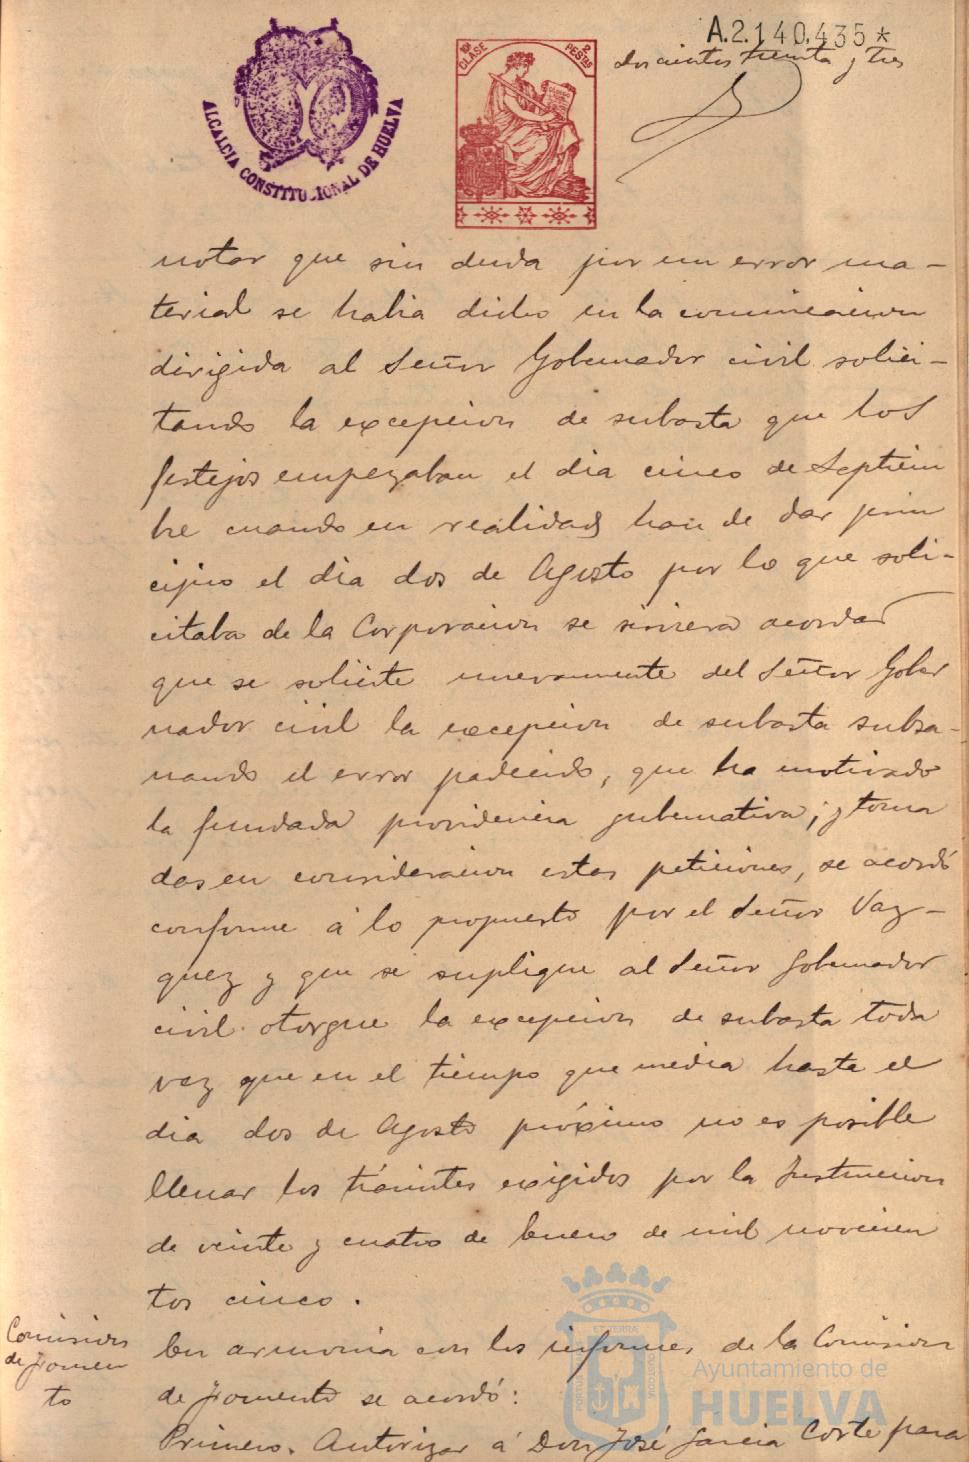 A.2.140.435*
doscientos treinta y tres
ALCALCIA CONSTITUCIONAL DE HUELVA
10ª CLASE
2 PESTAS
notar que sin duda por un error ma-
terial se habia dicho en la comunicacion
dirigida al Señor Gobernador civil solici-
tando la excepcion de subasta que los
festejos empezaban el dia cinco de Septiem
bre cuando en realidad han de dar prin
cipio el dia dos de Agosto por lo que soli-
citaba de la Corporacion se sirviera acordar
que se solicite nuevamente del Señor Gober
nador civil la excepcion de subasta subsa-
nando el error padecido, que ha motivado
la fundada providencia gubernativa; y toma
das en consideracion estas peticiones, se acordó
conforme á lo propuesto por el Señor Vaz-
quez y que se suplique al Señor Gobernador
civil otorgue la excepcion de subasta toda
vez que en el tiempo que media hasta el
dia dos de Agosto próximo no es posible
llenar los trámites exigidos por la Instruccion
de veinte y cuatro de Enero de mil novecien
tos cinco.
Comision
de Fomen
to
En armonia con los informes de la Comision
de Fomento se acordó:
Primero. Autorizar á Don José Garcia Corte para
Ayuntamiento de
HUELVA